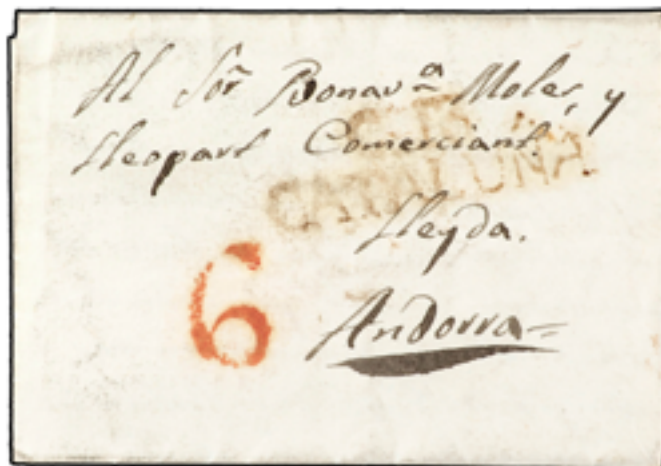 Al Sor. Bonava. Moles, y
Lleopart Comerciant.
CATALUÑA
Lleyda.
6
Andorra=